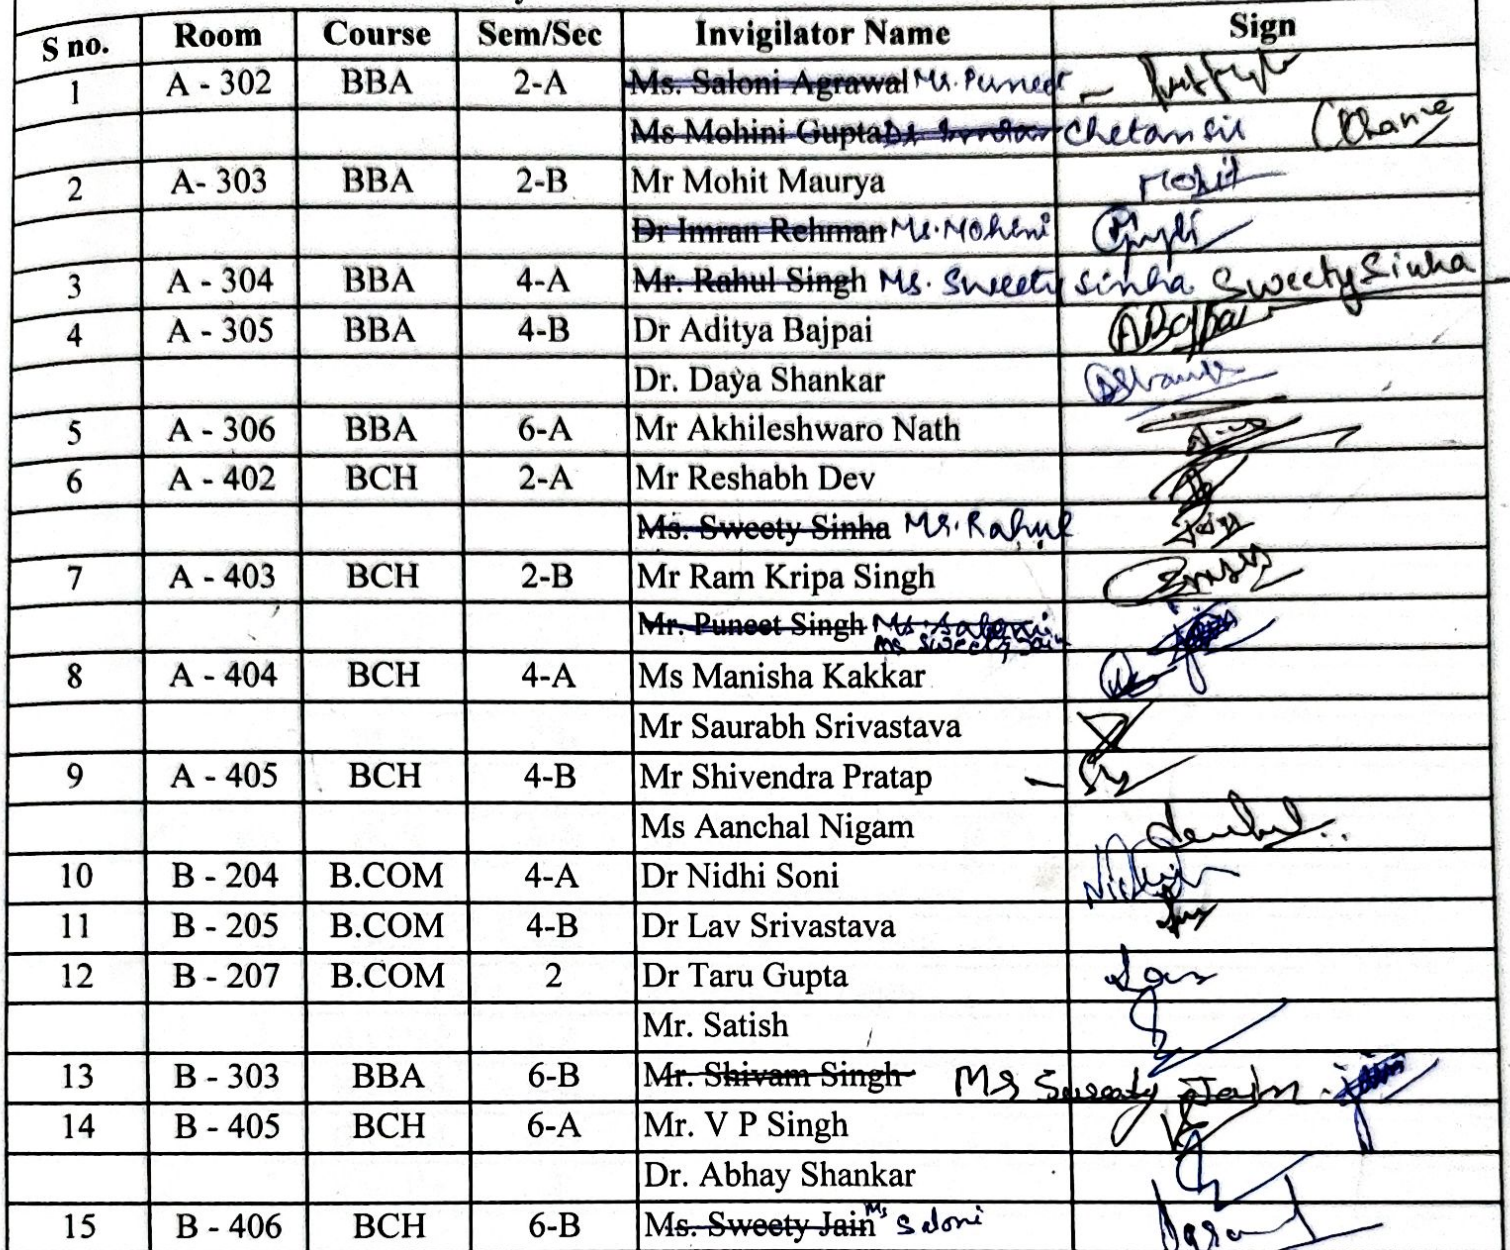 S no. Room Course Sem/Sec Invigilator Name Sign
1 A - 302 BBA 2-A Ms. Saloni Agrawal Mr. Puneet
Ms Mohini Gupta Chetan
2 A- 303 BBA 2-B Mr Mohit Maurya Mohit
Dr Imran Rehman Ms. Mohini
3 A - 304 BBA 4-A Mr. Rahul Singh Ms. Sweety Sinha Sweety Sinha
4 A - 305 BBA 4-B Dr Aditya Bajpai ABajpai
Dr. Daya Shankar
5 A - 306 BBA 6-A Mr Akhileshwaro Nath
6 A - 402 BCH 2-A Mr Reshabh Dev
Ms. Sweety Sinha Mr. Rahul
7 A - 403 BCH 2-B Mr Ram Kripa Singh
Mr. Puneet Singh Ms. Saloni
Ms Sweety Jain
8 A - 404 BCH 4-A Ms Manisha Kakkar
Mr Saurabh Srivastava
9 A - 405 BCH 4-B Mr Shivendra Pratap
Ms Aanchal Nigam
10 B - 204 B.COM 4-A Dr Nidhi Soni Nidhi
11 B - 205 B.COM 4-B Dr Lav Srivastava
12 B - 207 B.COM 2 Dr Taru Gupta
Mr. Satish
13 B - 303 BBA 6-B Mr. Shivam Singh Ms Sweety Jain
14 B - 405 BCH 6-A Mr. V P Singh
Dr. Abhay Shankar
15 B - 406 BCH 6-B Ms. Sweety Jain Ms Saloni